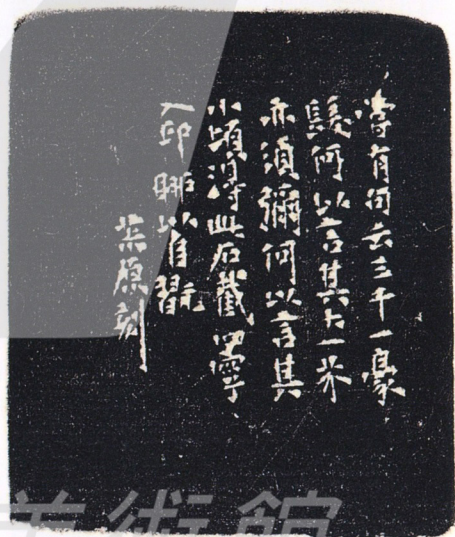 嘗有句云三千一毫
髮何以言其大一米
亦須彌何以言其
小頃得此石截
邱聊以自翫
原刻
美術館